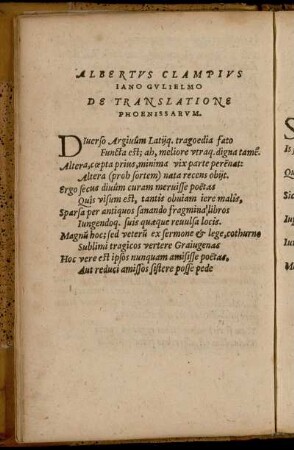 ALBERTVS CLAMPIVS
IANO GVLIELMO
DE TRANSLATIONE
PHOENISSARVM.
DIuerso Argiuûm Latijq. tragoedia fato
Functa est; ah, meliore vtraq. digna tamẽ.
Altera, cœpta prius, minima vix parte perênat:
Altera (proh sortem) nata recens obijt.
Ergo secus diuûm curam meruisse poëtas
Quis visum est, tantis obuiam iere malis,
Sparsa per antiquos sanando fragmina libros
Iungendoq. suis quæque reuulsa locis.
Magnũ hoc: sed veterũ ex sermone & lege, cothurno
Sublimi tragicos vertere Graiugenas
Hoc vere est ipsos nunquam amisisse poëtas,
Aut reduci amissos sistere posse pede